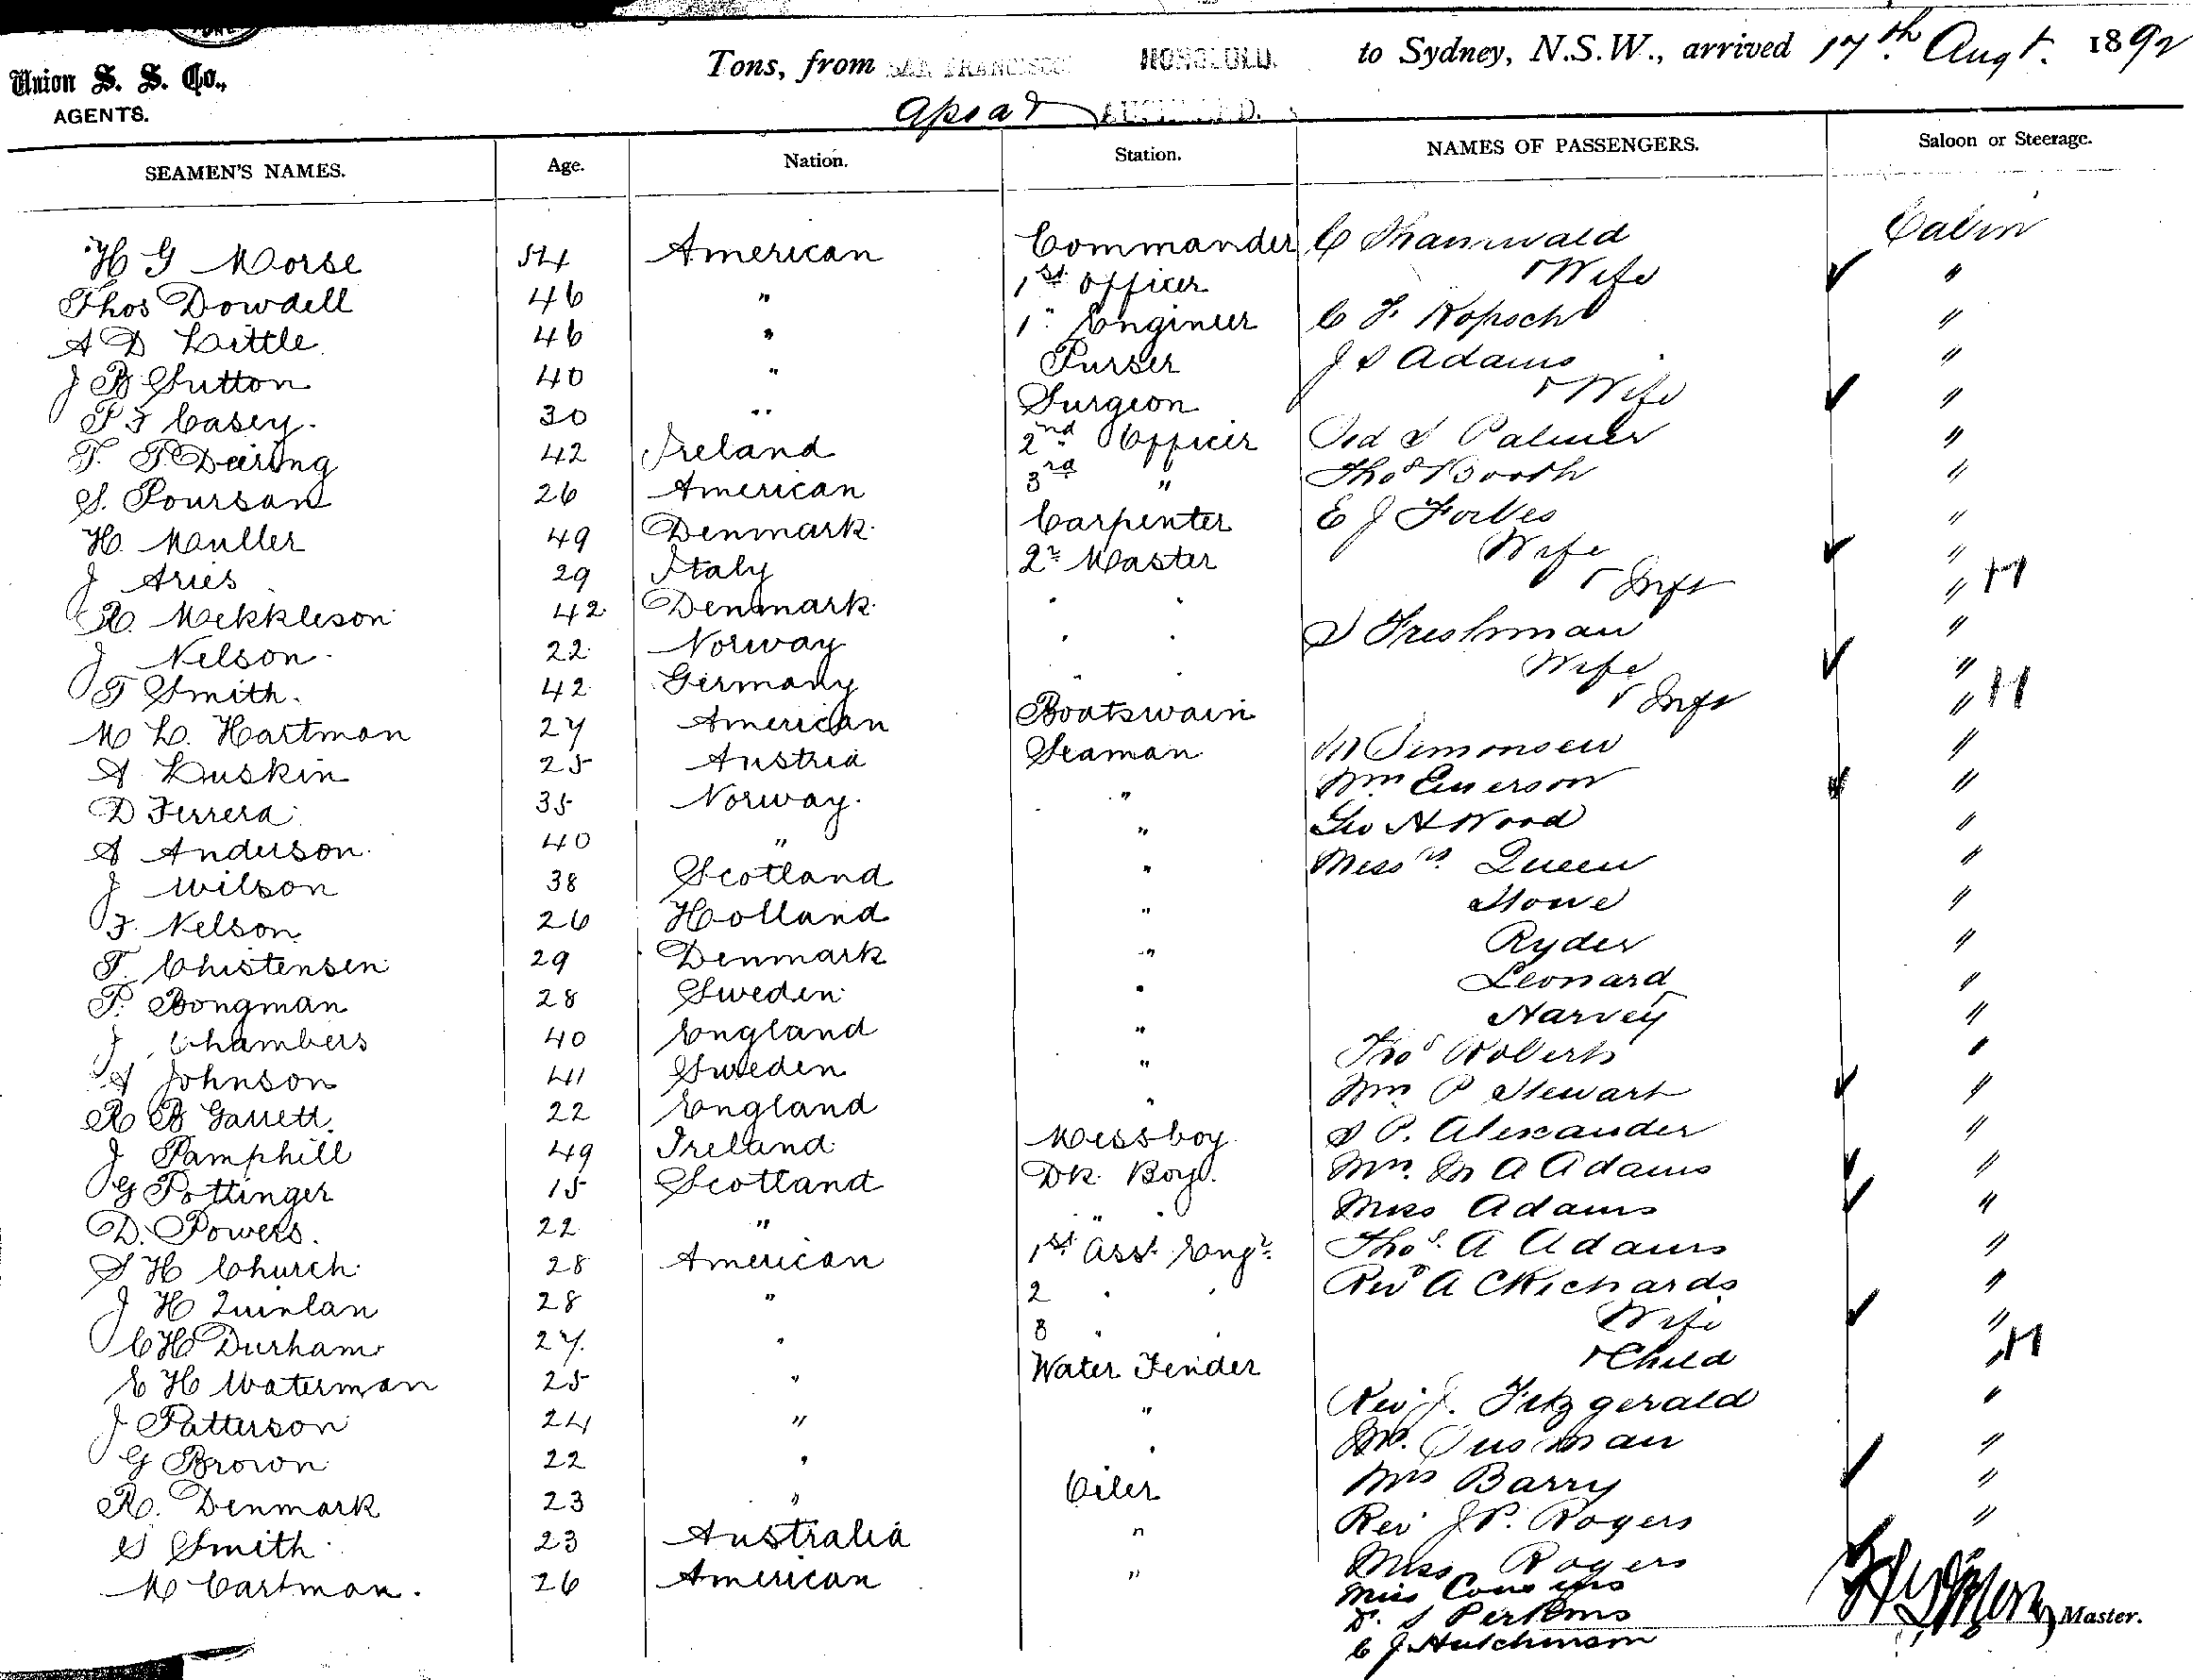 Tons, from SAN FRANCISCO HONOLULU. to Sydney, N.S.W., arrived 17th Augt. 1892
Union S. S. Co.,
AGENTS.
Apia & AUCKLAND.
SEAMEN'S NAMES. Age. Nation. Station. NAMES OF PASSENGERS. Saloon or Steerage.
H G Morse 54 American Commander C Cabin
& Wife "
Thos Dowdell 46 " 1st Officer
A D Little 46 " 1" Engineer C F Kopsch "
J B Sutton 40 " Purser J S Adams "
P F Casey. 30 " Surgeon & Wife "
T. P. Dearing 42 Ireland 2nd Officer Palmer "
S. Poursan 26 American 3rd " Thos Booth "
H. Muller 49 Denmark. Carpenter E J Forbes "
J Aries 29 Italy 2r Master Wife "
R. Mekkleson 42 Denmark. " " & Inft " H
J Nelson. 22 Norway " " S Freshman "
T Smith. 42 Germany " " Wife "
& Inft " H
M L. Hartman 27 American Boatswain
A Luskin 25 Austria Seaman M Simonsen "
D Ferrera 35 Norway. " Wm Emerson "
A Anderson. 40 " " Geo A Wood "
J Wilson 38 Scotland " Messrs Queen "
F. Nelson 26 Holland " Howe "
T. Christensen 29 Denmark " Ryder "
P. Bongman 28 Sweden " Leonard "
J Chambers 40 England " Harvey "
A Johnson 41 Sweden " Thos Roberts "
R B Garrett. 22 England " Mrs P Stewart "
J Pamphill 49 Ireland Messboy S P. Alexander "
G Pottinger 15 Scotland Dk. Boy. Mrs. M A Adams "
D. Powers. 22 " " " Miss Adams "
S H Church 28 American 1st Asst Engr. Thos. A Adams "
J H Quinlan 28 " 2 " " Revd A C Richards "
C H Durham 27. " 3 " " Wife "
E H Waterman 25 " Water Tender & Child " H
J Patterson 24 " " Rev J. Fitzgerald "
G Brown 22 " " Mr. "
R. Denmark 23 " Oiler Mrs Barry "
G Smith 23 Australia " Rev J P. Rogers "
M Cartman. 26 American " Miss Rogers "
Miss Cousins
D. S Perkins
H G Morse Master.
C J Hutchinson